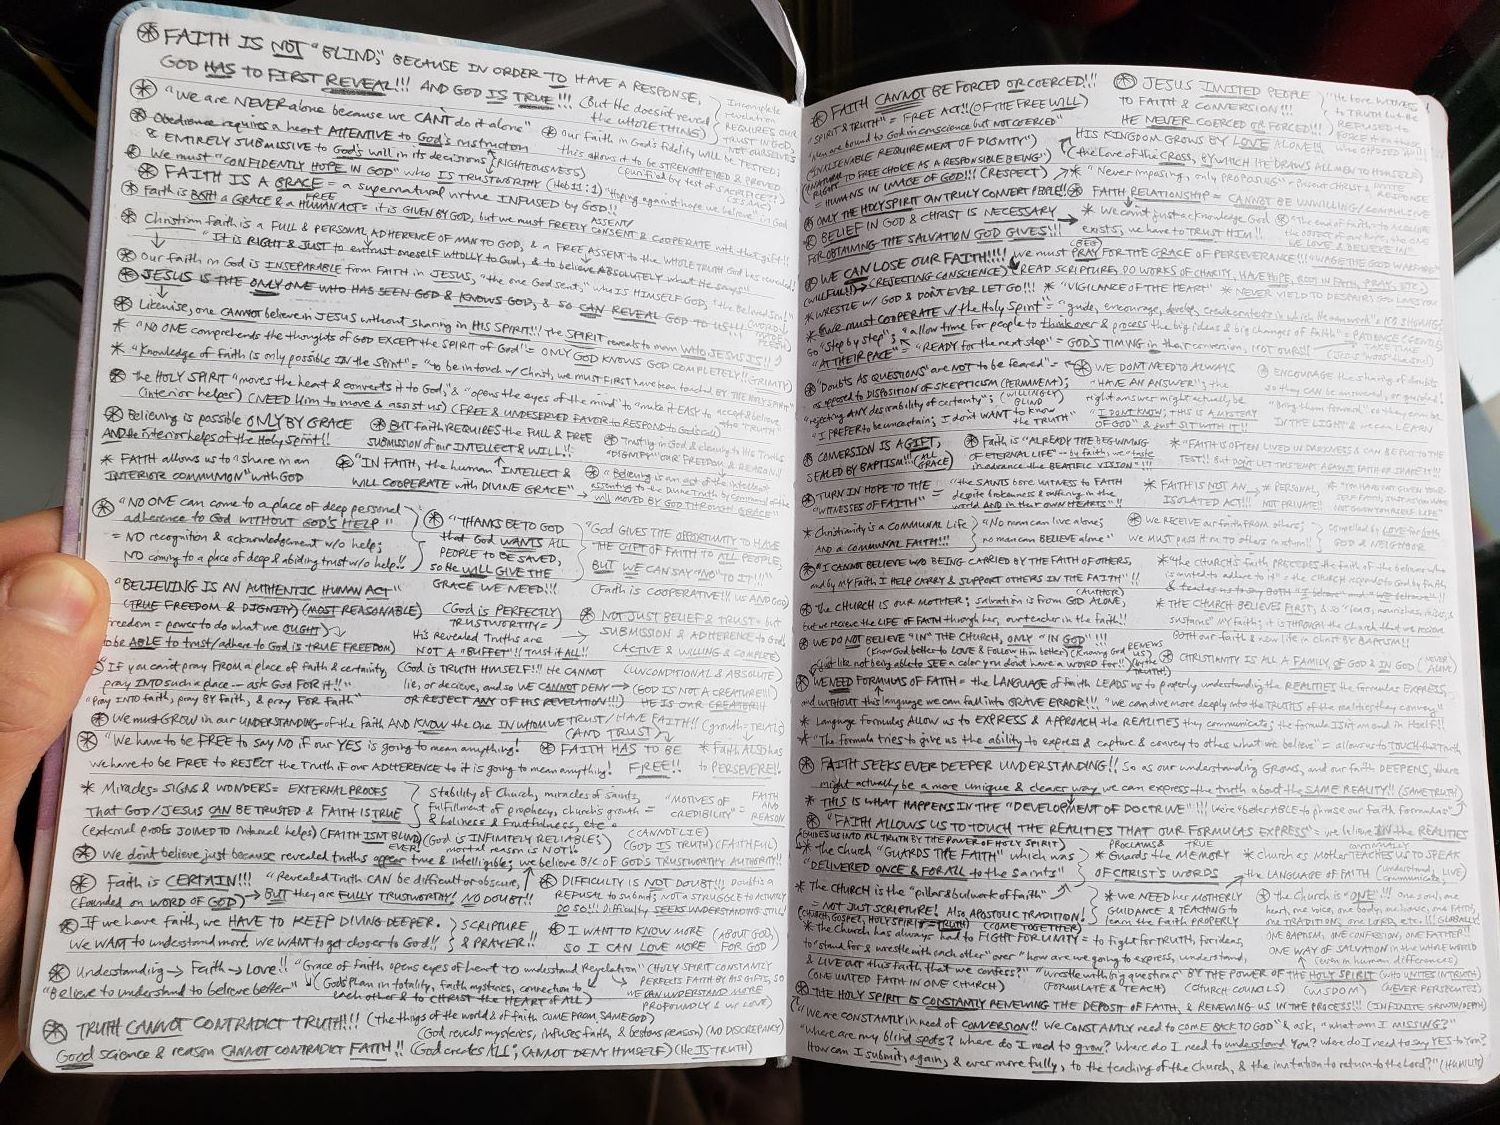 FAITH IS NOT "BLIND," BECAUSE IN ORDER TO HAVE A RESPONSE,
GOD HAS TO FIRST REVEAL!!! AND GOD IS TRUE!!! (But He doesn't reveal the WHOLE THING)
Incomplete revelation REQUIRES OUR TRUST IN GOD, NOT OURSELVES
"We are NEVER alone because we CAN'T do it alone"
Obedience requires a heart ATTENTIVE to God's instruction
& ENTIRELY SUBMISSIVE to God's will in its decisions (RIGHTEOUSNESS)
Our faith in God's fidelity will be TESTED;
this allows it to be STRENGTHENED & PROVED
We must "CONFIDENTLY HOPE IN GOD" who IS TRUSTWORTHY (Heb 11:1)
"Hoping against hope we believe" in God
FAITH IS A GRACE = a supernatural virtue INFUSED BY GOD!!
Faith is BOTH a GRACE & a HUMAN ACT = it is GIVEN BY GOD, but we must FREELY CONSENT & COOPERATE with that gift!!
FREE
ASSENT/
Christian faith is a FULL & PERSONAL ADHERENCE OF MAN TO GOD, & a FREE ASSENT to the WHOLE TRUTH God has revealed!
"It is RIGHT & JUST to entrust oneself WHOLLY to God, & to believe ABSOLUTELY what He says!!"
Our faith in God is INSEPARABLE from FAITH in JESUS, "the one God sent," who IS HIMSELF GOD, the Beloved Son!!
JESUS IS THE ONLY ONE WHO HAS SEEN GOD & KNOWS GOD, & SO CAN REVEAL GOD TO US!!!
Likewise, one CANNOT believe in JESUS without sharing in HIS SPIRIT!! The SPIRIT reveals to men WHO JESUS IS!!
"NO ONE comprehends the thoughts of GOD EXCEPT the SPIRIT of God" = ONLY GOD KNOWS GOD COMPLETELY!! (TRINITY)
"Knowledge of Faith is only possible IN the Spirit" = "to be in touch w/ Christ, we must FIRST have been touched BY THE HOLY SPIRIT"
the HOLY SPIRIT "moves the heart & converts it to God," & "opens the eyes of the mind" to "make it EASY to accept & believe the TRUTH"
(interior helper) (NEED Him to move & assist us) (FREE & UNDESERVED FAVOR to RESPOND to God's call)
Believing is possible ONLY BY GRACE
AND the interior helps of the Holy Spirit!!
BUT faith REQUIRES the FULL & FREE
SUBMISSION of our INTELLECT & WILL!!
Trusting in God & cleaving to His Truths
"DIGNITY" OUR FREEDOM & REASON!!
FAITH allows us to "share in an
INTERIOR COMMUNION" with GOD
"IN FAITH, the human INTELLECT &
WILL COOPERATE with DIVINE GRACE"
"Believing is an act of the intellect
assenting to the Divine Truth by command of the
will MOVED BY GOD THROUGH GRACE"
"NO ONE can come to a place of deep personal
adherence to God WITHOUT GOD'S HELP"
= NO recognition & acknowledgment w/o help;
NO coming to a place of deep & abiding trust w/o help!!
"THANKS BE TO GOD
that God WANTS ALL
PEOPLE to BE SAVED,
so He WILL GIVE THE
GRACE WE NEED!!!
"God GIVES THE OPPORTUNITY to HAVE
THE GIFT OF FAITH TO ALL PEOPLE,
BUT WE CAN SAY "NO" TO IT!!!"
(Faith is COOPERATIVE!! US AND GOD)
"BELIEVING IS AN AUTHENTIC HUMAN ACT"
(TRUE FREEDOM & DIGNITY) (MOST REASONABLE)
freedom = power to do what we OUGHT)
to be ABLE to trust/adhere to God is TRUE FREEDOM)
(God is PERFECTLY
TRUSTWORTHY =)
His Revealed Truths are
NOT A "BUFFET"! Trust it ALL!!
NOT JUST BELIEF & TRUST = but
SUBMISSION & ADHERENCE to God!
(ACTIVE & WILLING & COMPLETE)
"If you can't pray FROM a place of faith & certainty,
pray INTO such a place -- ask God FOR IT!!"
"Pray INTO faith, pray BY faith, & pray FOR faith"
(God is TRUTH HIMSELF!! HE CANNOT
lie, or deceive, and so WE CANNOT DENY
OR REJECT ANY OF HIS REVELATION!!!)
(UNCONDITIONAL & ABSOLUTE)
(GOD IS NOT A CREATURE!!!)
HE IS OUR CREATOR!!!
We must GROW in our UNDERSTANDING of the FAITH AND KNOW the One IN WHOM WE TRUST / HAVE FAITH!! (growth = TRIALS)
(AND TRUST)
"We have to be FREE to SAY NO if our YES is going to mean anything!
we have to be FREE to REJECT the Truth if our ADHERENCE to it is going to mean anything!
FAITH HAS TO BE
FREE!!
Faith ALSO has
to PERSEVERE!!
Miracles = SIGNS & WONDERS = EXTERNAL PROOFS
THAT GOD/JESUS CAN BE TRUSTED & FAITH IS TRUE
(external proofs JOINED TO internal helps) (FAITH ISN'T BLIND) EVER!
Stability of Church, miracles of saints,
fulfillment of prophecy, church's growth
& holiness & fruitfulness, etc.
= "MOTIVES OF
CREDIBILITY" =
FAITH
AND
REASON
(GOD is INFINITELY RELIABLE)
mortal reason is NOT!!
(CANNOT LIE)
(GOD IS TRUTH) (FAITHFUL)
We don't believe just because revealed truths appear true & intelligible; we believe B/C OF GOD'S TRUSTWORTHY AUTHORITY!!
Faith is CERTAIN!!!
(founded on WORD OF GOD)
"Revealed Truth CAN be difficult or obscure,
BUT they are FULLY TRUSTWORTHY! NO DOUBT!!
DIFFICULTY IS NOT DOUBT!!! doubt is a
REFUSAL to SUBMIT, NOT A STRUGGLE to ACTUALLY
DO SO!!! Difficulty SEEKS UNDERSTANDING STILL!
If we have FAITH, we HAVE TO KEEP DIVING DEEPER.
We WANT to understand more. We WANT to get closer to God!!
SCRIPTURE
& PRAYER!!
I WANT to KNOW MORE (ABOUT GOD)
SO I CAN LOVE MORE FOR GOD)
Understanding → Faith → Love!!
"Believe to understand to believe better"
"Grace of faith opens eyes of heart to understand Revelation"
(God's plan in totality, faith mysteries, connection to
each other & to CHRIST the HEART of ALL)
(HOLY SPIRIT CONSTANTLY
PERFECTS FAITH BY HIS GIFTS, SO
WE CAN UNDERSTAND MORE
PROFOUNDLY & w/ LOVE)
TRUTH CANNOT CONTRADICT TRUTH!!! (the things of the world & of faith COME FROM SAME GOD)
(God reveals mysteries, infuses faith, & bestows reason) (NO DISCREPANCY)
Good science & reason CANNOT CONTRADICT FAITH!! (God creates ALL; CANNOT DENY HIMSELF) (He IS TRUTH)
FAITH CANNOT BE FORCED OR COERCED!!!
"SPIRIT & TRUTH" = FREE ACT!! (OF THE FREE WILL)
"Men are bound to God in conscience but not COERCED"
(INALIENABLE REQUIREMENT OF DIGNITY")
("NATURE TO FREE CHOICE AS A RESPONSIBLE BEING")
RIGHT
= HUMANS IN IMAGE OF GOD!!! (RESPECT)
JESUS INVITED PEOPLE
TO FAITH & CONVERSION!!!
HE NEVER COERCED OR FORCED!!!
"He bore WITNESS
to TRUTH but He
REFUSED to
FORCE it on those
HIS KINGDOM GROWS BY LOVE ALONE!!!
(the love of the CROSS, BY WHICH HE DRAWS ALL MEN TO HIMSELF)
"Never imposing, only PROPOSING" = present CHRIST & INVITE
RESPONSE
ONLY THE HOLY SPIRIT CAN TRULY CONVERT PEOPLE!!!
FAITH RELATIONSHIP = CANNOT BE UNWILLING/COMPULSIVE
BELIEF IN GOD & CHRIST IS NECESSARY
FOR OBTAINING THE SALVATION GOD GIVES!!!
We can't just acknowledge God
exists, we have to TRUST HIM!!
WE CAN LOSE OUR FAITH!!!! We must PRAY FOR THE GRACE OF PERSEVERANCE!!! "WAGE THE GOOD WARFARE"
(BEG)
(WILLFUL!!) → (REJECTING CONSCIENCE) (READ SCRIPTURE, DO WORKS OF CHARITY, HAVE HOPE, ROOT IN FAITH, PRAY, ETC)
WRESTLE w/ GOD & DON'T EVER LET GO!!! * "VIGILANCE OF THE HEART" * NEVER YIELD TO DESPAIR! GOD LOVES YOU
We must COOPERATE w/ the Holy Spirit = "guide, encourage,
Go "step by step"; "allow time for people to think over & process the big ideas & big changes of faith" = PATIENCE
"AT THEIR PACE" = "READY for the next step" = GOD'S TIMING in their conversion, NOT OURS!!
"Doubts AS QUESTIONS" are NOT to be feared" =
as opposed to DISPOSITION OF SKEPTICISM (PERMANENT);
"rejecting ANY desirability of certainty"; (WILLINGLY BLIND
"I PREFER to be uncertain; I don't WANT to know the TRUTH"
WE DON'T NEED TO ALWAYS
"HAVE AN ANSWER"; the
right answer might actually be
"I DON'T KNOW; THIS IS A MYSTERY
OF GOD" & just SIT WITH IT!!
ENCOURAGE the sharing of doubts
so they CAN be answered, or guided!
"Bring them forward" so they can be
IN THE LIGHT & we can LEARN
CONVERSION IS A GIFT,
SEALED BY BAPTISM!!! (ALL GRACE)
Faith is "ALREADY THE BEGINNING
OF ETERNAL LIFE" -- by faith, we "taste
in advance the BEATIFIC VISION"!!!
"FAITH IS OFTEN LIVED IN DARKNESS & CAN BE PUT TO THE
TEST!! But DON'T LET THIS TEMPT AGAINST FAITH
TURN IN HOPE TO THE
"WITNESSES OF FAITH" =
"the SAINTS bore WITNESS TO FAITH
despite brokenness & suffering in the
world AND in their OWN HEARTS"!!
FAITH IS NOT AN
ISOLATED ACT!!!
PERSONAL,
NOT PRIVATE!!
"YOU HAVE NOT GIVEN YOUR
SELF FAITH, JUST AS YOU HAVE
NOT GIVEN YOURSELF LIFE"
Christianity is A COMMUNAL LIFE
AND A COMMUNAL FAITH!!!
"No man can live alone;
no man can BELIEVE alone"
WE RECEIVE our FAITH FROM others;
WE must PASS it on TO others in return!!
compelled by LOVE for both
GOD & NEIGHBOR
"I CANNOT BELIEVE W/O BEING CARRIED BY THE FAITH OF OTHERS,
and by MY FAITH I HELP CARRY & SUPPORT OTHERS IN THE FAITH"!!
"the CHURCH'S FAITH PRECEDES the faith of the believer who
is invited to adhere to it" = the CHURCH responds to God by faith,
& teaches us to say BOTH "I believe" and "we believe"!!
the CHURCH IS OUR MOTHER; salvation is from GOD ALONE,
(AUTHOR)
but we receive the LIFE OF FAITH through her, our teacher in the faith!!
THE CHURCH BELIEVES FIRST, & so "bears, nourishes, &
sustains" MY FAITH; it is THROUGH the church that we receive
BOTH our faith & new life in Christ BY BAPTISM!!
WE DO NOT BELIEVE "IN" THE CHURCH, ONLY "IN GOD"!!!!
(Know God better to LOVE & Follow Him better) (Knowing God RENEWS US)
Just like not being able to SEE a color you don't have a WORD for!!) (by the TRUTH)
CHRISTIANITY IS ALL A FAMILY OF GOD & IN GOD (NEVER ALONE)
WE NEED FORMULAS OF FAITH = the LANGUAGE of faith LEADS US to properly understanding the REALITIES the formulas EXPRESS,
and WITHOUT this language we can fall into GRAVE ERROR!!! "we can dive more deeply into the TRUTHS of the realities they convey"
Language formulas ALLOW US to EXPRESS & APPROACH the REALITIES they communicate; the formula ISN'T an end in itself!!
"The formula tries to give us the ability to express & capture & convey to others what we believe" = allows us to TOUCH the Truth
FAITH SEEKS EVER DEEPER UNDERSTANDING!! So as our understanding GROWS, and our faith DEEPENS, there
might actually be a more unique & clever way we can express the truth about the SAME REALITY!! (SAME TRUTH)
THIS IS WHAT HAPPENS IN THE "DEVELOPMENT OF DOCTRINE"!!! We're better ABLE to phrase our faith formulas
"FAITH ALLOWS US TO TOUCH THE REALITIES THAT OUR FORMULAS EXPRESS" = we believe IN the REALITIES
(GUIDES US INTO ALL TRUTH BY THE POWER OF HOLY SPIRIT)
the Church "GUARDS THE FAITH" which was
"DELIVERED ONCE & FOR ALL to the Saints"
PROCLAIMS & TRUE
Guards the MEMORY
OF CHRIST'S WORDS
Church as Mother TEACHES US TO SPEAK
the LANGUAGE OF FAITH (Understand, communicate, LIVE)
The CHURCH is the "pillar & bulwark of faith"
= NOT JUST SCRIPTURE! Also APOSTOLIC TRADITION!
(CHURCH, GOSPEL, HOLY SPIRIT = TRUTH) (COME TOGETHER)
WE NEED her MOTHERLY
GUIDANCE & TEACHING to
learn the FAITH PROPERLY
the Church is "ONE"!!! One soul, one
heart, one voice, one body, one house, one FAITH,
one TRADITION, one LORD, etc.!!! GLOBALLY!
The Church has always had to FIGHT FOR UNITY = to fight for TRUTH, for ideas,
to "stand for & wrestle with each other" over "how are we going to express, understand,
& LIVE OUT this FAITH that we confess?"
ONE BAPTISM, ONE CONFESSION, ONE FATHER!!
ONE WAY OF SALVATION IN the WHOLE WORLD
(even in human differences)
"wrestle with big questions" BY THE POWER OF THE HOLY SPIRIT (WHO UNITES IN TRUTH)
(ONE UNITED FAITH IN ONE CHURCH) (FORMULATE & TEACH) (CHURCH COUNCILS) (WISDOM) (NEVER SEPARATES)
THE HOLY SPIRIT IS CONSTANTLY RENEWING THE DEPOSIT OF FAITH, & RENEWING US IN THE PROCESS!!! (INFINITE GROWTH/DEPTH)
"We are CONSTANTLY in need of CONVERSION!! We CONSTANTLY need to COME BACK TO GOD" & ask, "what am I MISSING?"
"Where are my blind spots? Where do I need to grow? Where do I need to understand You? Where do I need to say YES to You?
How can I submit, again, & ever more fully, to the teaching of the Church, & the invitation to return to the Lord?" (HUMILITY)